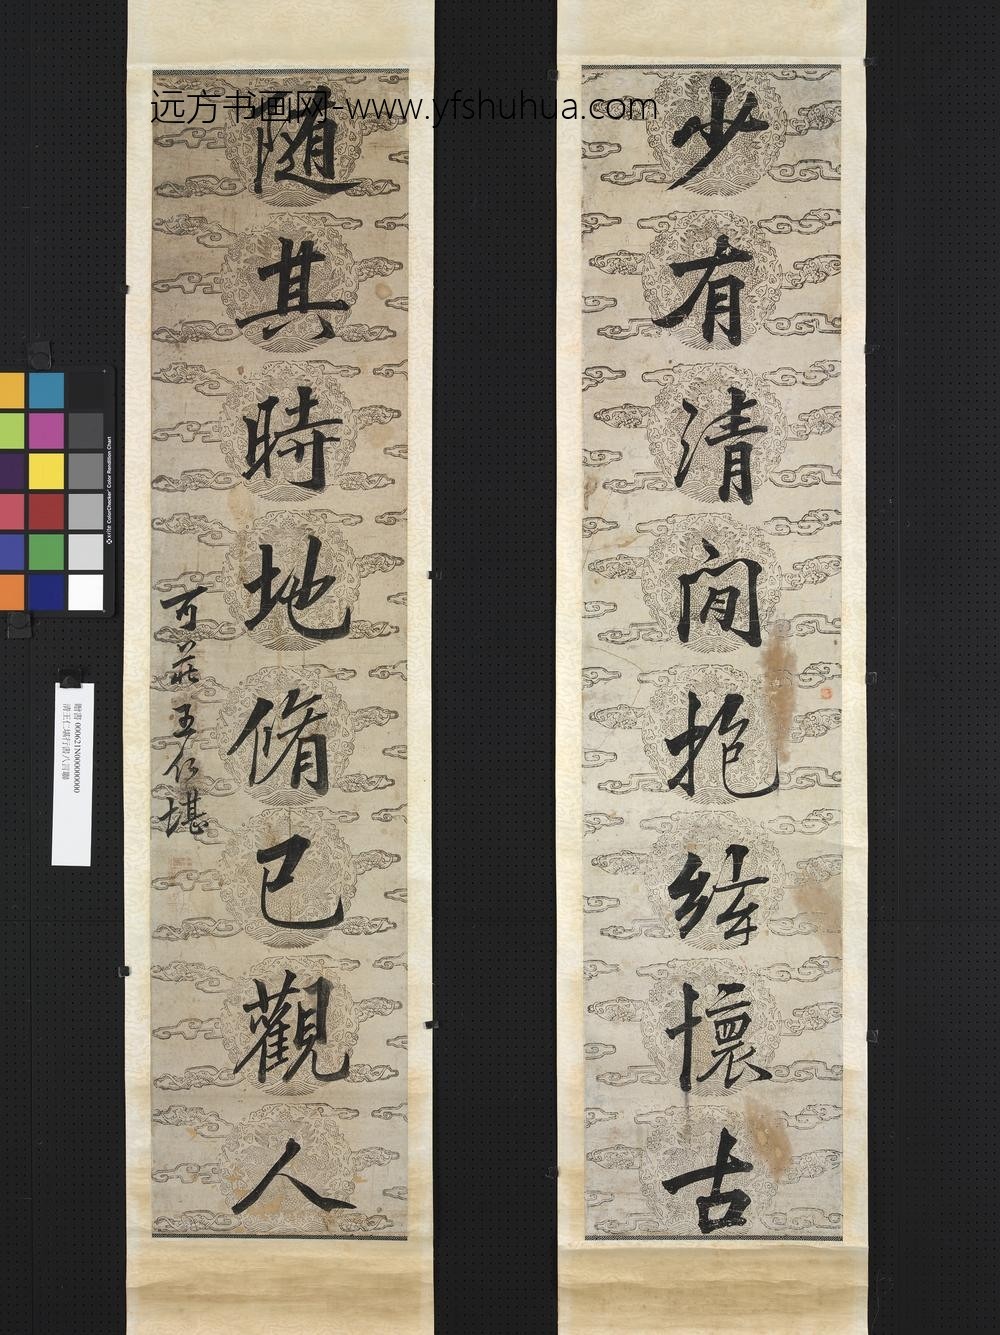 远方书画网-www.yfshuhua.com
少有清閒抱絳懷古
随其時地脩己觀人
可莊王仁堪
贈書 000621N000000000
清王仁堪行書八言聯